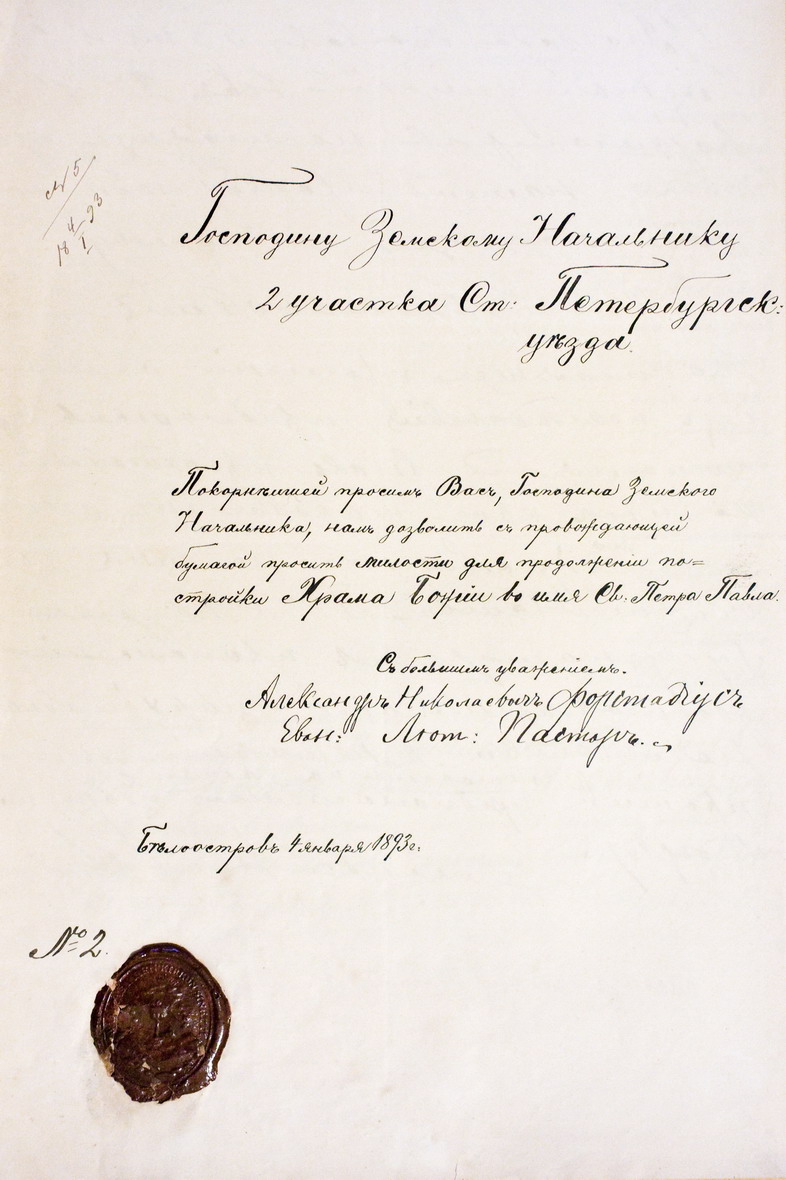 № 5
18 4/I 93
Господину Земскому Начальнику
2 участка Ст: Петербургск:
уѣзда.
Покорнѣишей просимъ Васъ, Господина Земского
Начальника, намъ дозволить съ провождающей
бумагой просить милости для продолженіи по=
стройки Храма Божіи во имя Св. Петра Павла.
Съ большимъ уваженіемъ.
Александръ Николаевичъ
Еван: Лют: Пасторъ.
Бѣлоостровъ 4 января 1893 г:
№ 2.